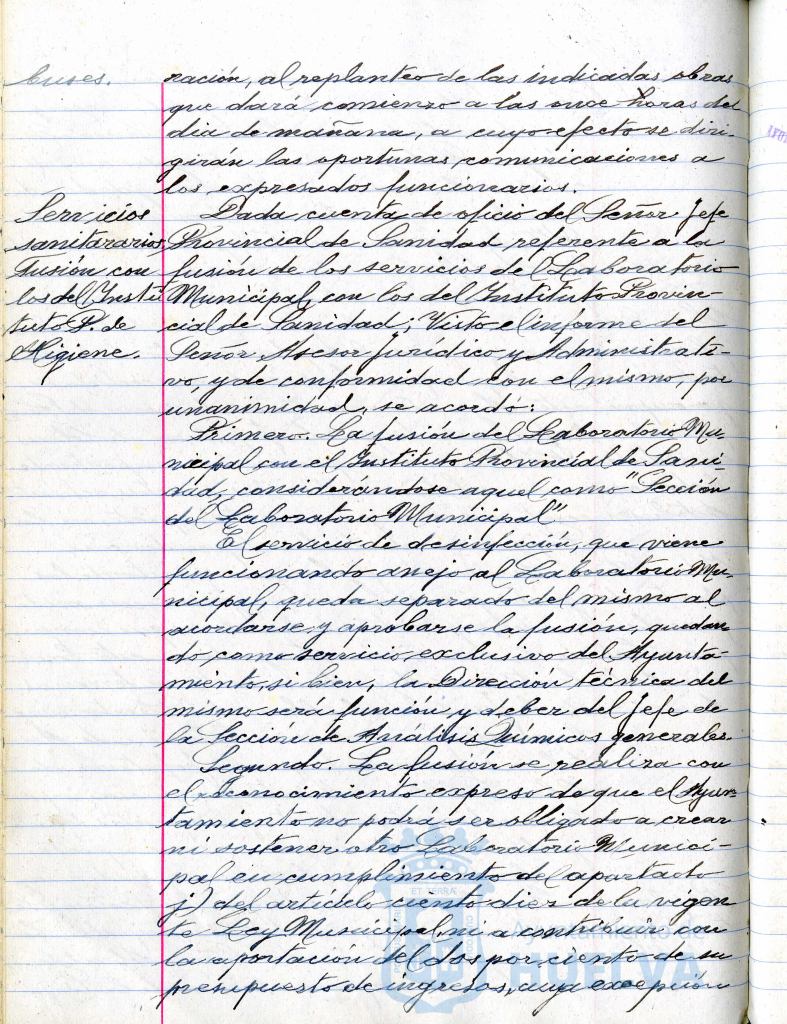 buses.
ración, al replanteo de las indicadas obras
que dará comienzo a las once horas del
dia de mañana, a cuyo efecto se diri-
girán las oportunas comunicaciones a
los expresados funcionarios.
Servicios
sanitararios,
Fusión con
los del Insti
tuto P. de
Higiene.
Dada cuenta de oficio del Señor Jefe
Provincial de Sanidad referente a la
fusión de los servicios del Laboratorio
Municipal, con los del Instituto Provin-
cial de Sanidad; Visto el informe del
Señor Asesor Jurídico y Administrati-
vo, y de conformidad con el mismo, por
unanimidad, se acordó:
Primero. La fusión del Laboratorio Mu-
nicipal con el Instituto Provincial de Sani-
dad, considerándose aquel como "Sección
del Laboratorio Municipal".
El servicio de desinfección, que viene
funcionando anejo al Laboratorio Mu-
nicipal, queda separado del mismo al
acordarse y aprobarse la fusión, quedan
do como servicio exclusivo del Ayunta-
miento, si bien, la Dirección técnica del
mismo será función y deber del Jefe de
la Sección de Análisis Químicos generales.
Segundo. La fusión se realiza con
el reconocimiento expreso de que el Ayun-
tamiento no podrá ser obligado a crear
ni sostener otro Laboratorio Munici-
pal en cumplimiento del apartado
j) del artículo ciento diez de la vigen
te Ley Municipal, ni a contribuir con
la aportación del dos por ciento de su
presupuesto de ingresos, cuya excepción
ET TERRÆ
Ayuntamiento de
HUELVA